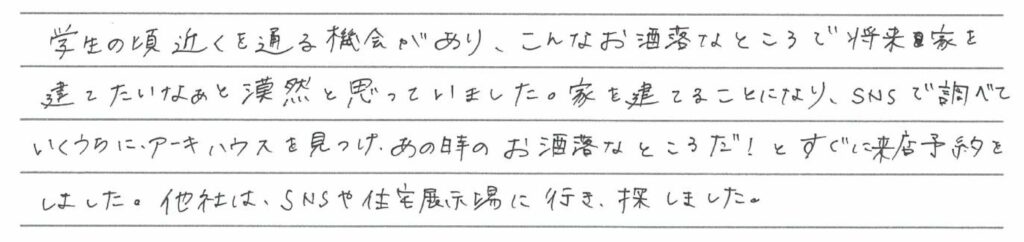 学生の頃近くを通る機会があり、こんなお洒落なところで将来家を
建てたいなぁと漠然と思っていました。家を建てることになり、SNSで調べて
いくうちに、アーキハウスを見つけ、あの時のお洒落なところだ！とすぐに来店予約を
しました。他社は、SNSや住宅展示場に行き、探しました。